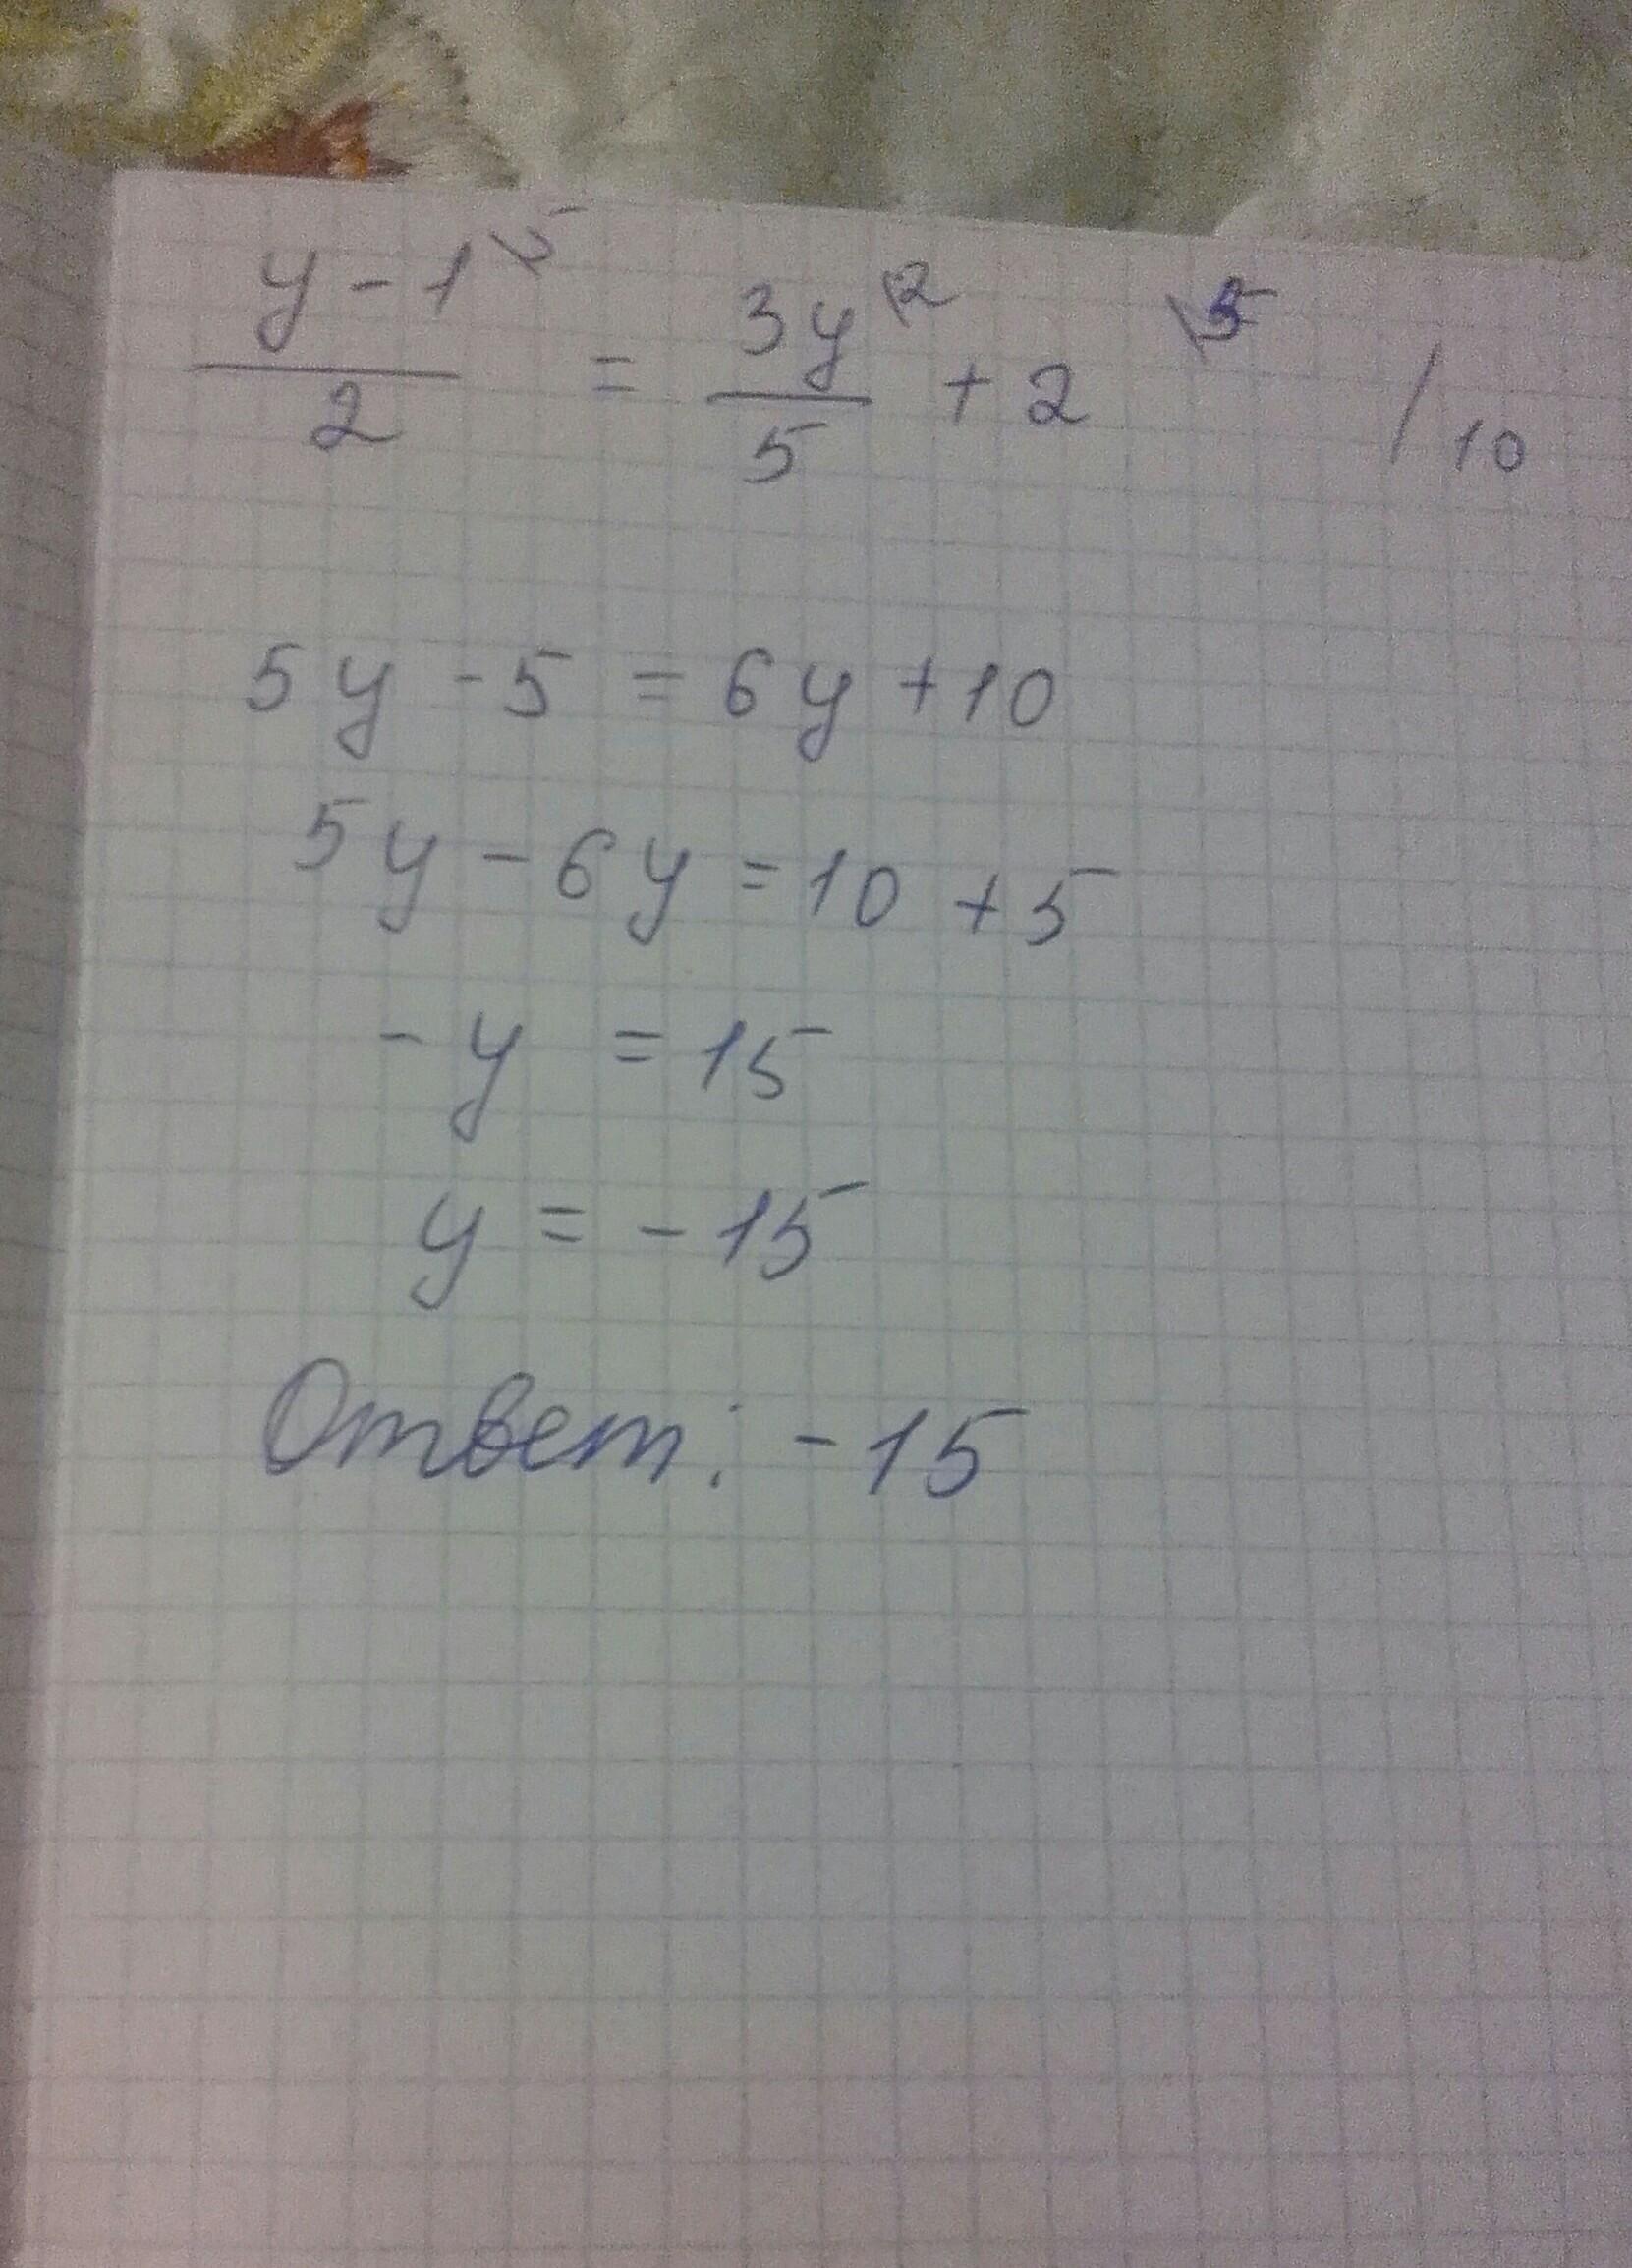 (y - 1)^{\5} / 2 = 3y^{\2} / 5 + 2^{\5} / 10
5y - 5 = 6y + 10
5y - 6y = 10 + 5
- y = 15
y = - 15
Ответ: - 15